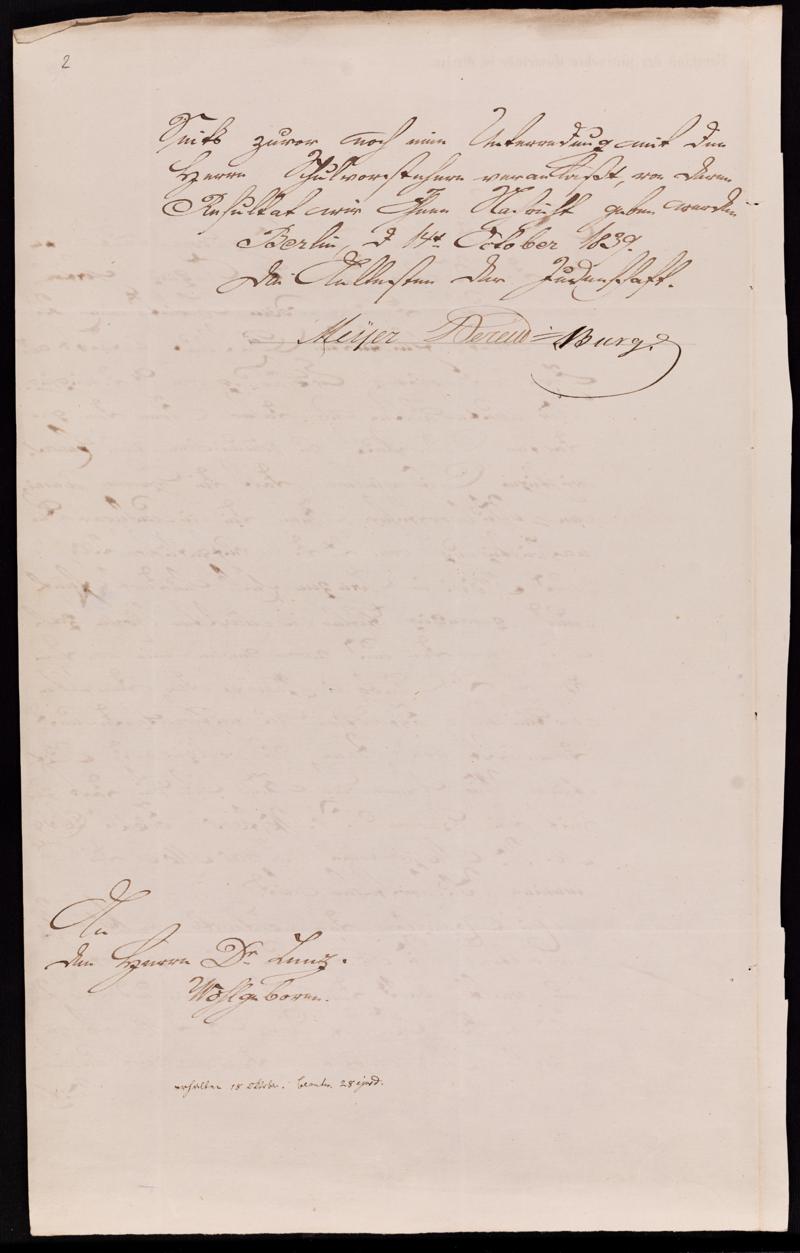 2
Seits zuvor noch eine Unterredung mit den
Herrn Schulvorstehern veranlaßt, von deren
Resultat wir Ihnen Nachricht geben werden.
Berlin, d 14t October 1839.
Die Aeltesten der Judenschaft.
Meyer Berend Burg
An
den Herrn Dr Zunz.
Wohlgeboren.
erhalten 18 Oktbr. beantw. 28 ejusd.